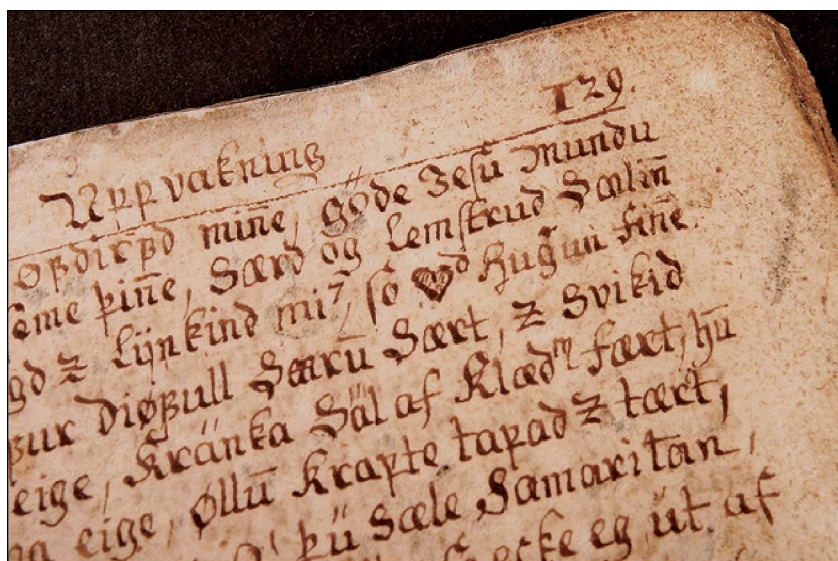 129.
Uppvakning
mine, gode Jesu mundu
eme þine, Særd og lemstrud Sælin
gd z lijnkind mr, so ♥d hugun fine.
ur diøfull Saaru Sært, z svikid
eige, Kränka Säl af Klædm fært, hū
eige, øllū krapte tapad z tært,
þü sæle Samaritan,
ecke eg üt af